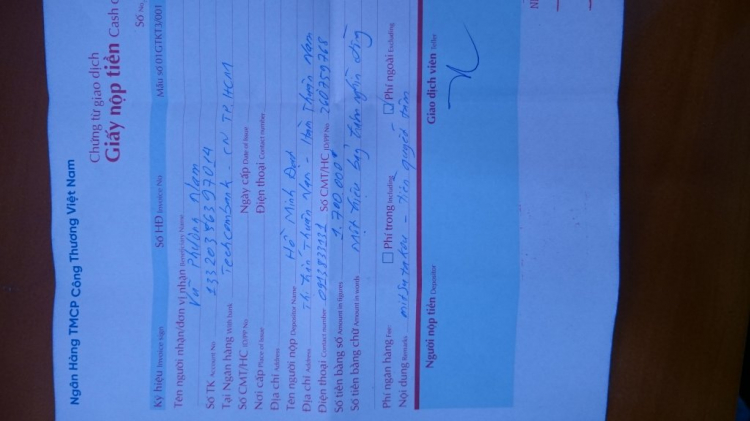 Ngân Hàng TMCP Công Thương Việt Nam
Chứng từ giao dịch
Giấy nộp tiền Cash
Số No.
Ký hiệu Invoice sign Số HĐ Invoice No. Mẫu số 01GTKT3/001
Tên người nhận/đơn vị nhận Beneficiary Name
Vũ Phương Nam
Số TK Account No 13320386397014
Tại Ngân hàng With bank Techcombank - CN TP. HCM
Số CMT/HC ID/PP No Ngày cấp Date of Issue
Nơi cấp Place of Issue Điện thoại Contact number
Địa chỉ Address
Tên người nộp Depositor Name Hồ Minh
Địa chỉ Address Thuận Nam - Hàm Thuận Nam
Điện thoại Contact number Số CMT/HC ID/PP No 260759768
Số tiền bằng số Amount in figures
Số tiền bằng chữ Amount in words Một triệu bảy trăm đồng
Phí ngân hàng Fee: Phí trong Including Phí ngoài Excluding
Nội dung Remarks
Người nộp tiền Depositor Giao dịch viên Teller